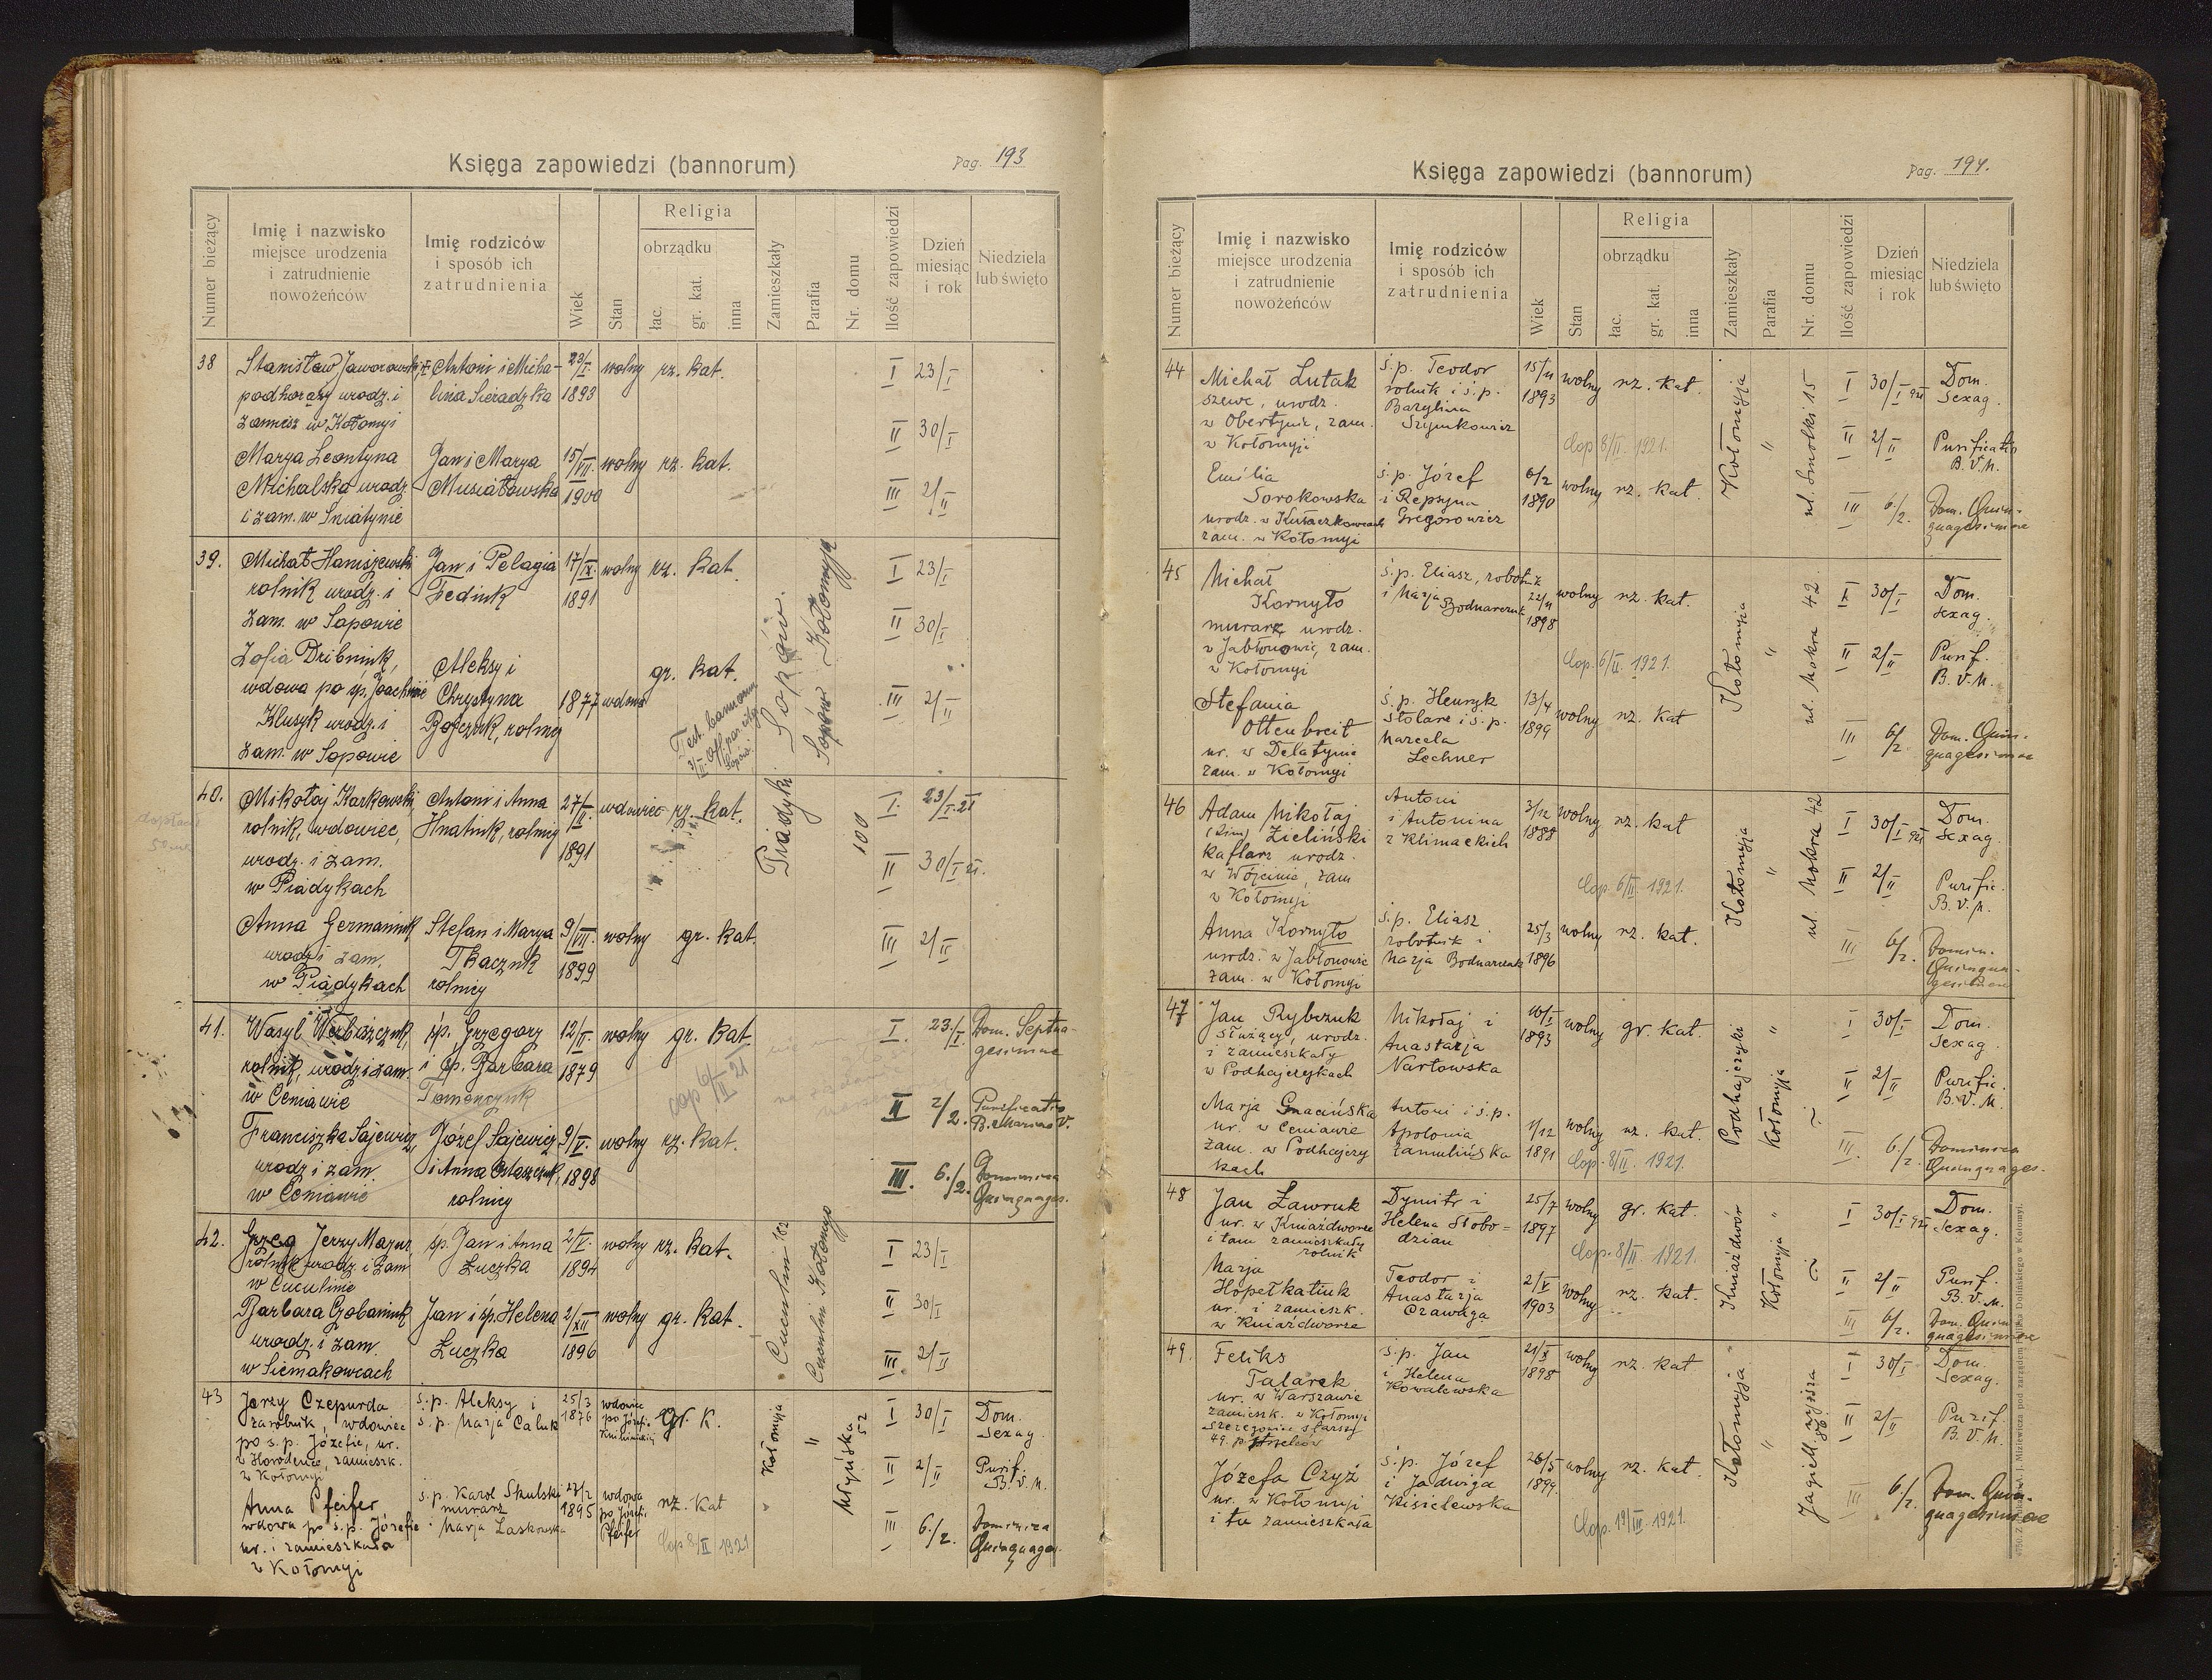 Księga zapowiedzi (bannorum)
Pag. 193
Numer bieżący
Imię i nazwisko
miejsce urodzenia
i zatrudnienie
nowożeńców
Imię rodziców
i sposób ich
zatrudnienia
Wiek
Stan
Religia
obrządku
łac.
gr. kat.
inna
Zamieszkały
Parafia
Nr. domu
Ilość zapowiedzi
Dzień
miesiąc
i rok
Niedziela
lub święto
38
Stanisław Jaworowski, Antoni i Micha- 23/I. wolny rz. kat. I 23/I
podhorąży urodz. i lina Sieradzka 1893
zamiesz w Kołomyi II 30/I
Marya Leontyna Jan i Marya 15/VII. wolny rz. kat.
Michalska urodz. Musiałowska 1900 III 2/II
i zam. w Śniatynie
39. Michał Haniszewski Jan i Pelagia 17/IX. wolny rz. kat. I 23/I
rolnik urodz. i Fediuk 1891
zam. w Sopowie II 30/I
Zofia Dribniuk, Aleksy i gr. kat.
wdowa po śp. Joachimie Chrystyna 1877 wdowa III 2/II
Klusyk urodz. i Bojczuk, rolnicy
zam. w Sopowie
Sopów.
Sopów Kołomyja
40. Mikołaj Karkowski, Antoni i Anna 27/II. wdowiec rz. kat. I. 23/I.21
rolnik, wdowiec, Hnatiuk, rolnicy 1891
urodz. i zam. II 30/I 21.
w Piadykach
Anna Germaniuk Stefan i Marya 9/VII. wolny gr. kat. III 2/II
urodz i zam. Tkaczuk 1899
w Piadykach rolnicy
Piadyki
100
41. Wasyl Werbiszczuk, śp. Grzegorz 12/II. wolny gr. kat. I. 23./I. Dom. Septua-
rolnik, urodz i zam. i śp. Barbara 1879 gesimae
w Ceniawie Tomenczuk cop 6/II 21 II 2/2. Purificatio
B. Mariae V.
Franciszka Sajewicz, Józef Sajewicz 9/V. wolny rz. kat.
urodz i zam. i Anna 1898 III. 6./2. Dominica
w Ceniawie rolnicy Quinquages.
42. Jerzy Mazur, śp. Jan i Anna 2/V. wolny rz. kat. I 23/I
rolnik urodz i zam Łuczka 1894
w Cuculinie
Barbara Czobaniuk Jan i śp. Helena 2/XII wolny gr. kat. II 30/I
urodz. i zam. Łuczka 1896
w Siemakowcach III 2/II
43 Jerzy Czepurda ś.p. Aleksy i 25/3 wdowiec gr. K. I 30/I Dom.
zarobnik, wdowiec ś.p. Marja Caluk 1876 po Józefie Sexag.
po ś.p. Józefie, ur.
w Horodence, zamieszk. II 2/II Purif.
w Kołomyi B. V. M.
Anna Pfeifer ś.p. Karol Skulski 1895 wdowa rz. kat
wdowa po ś.p. Józefie murarz po Józefie III 6./2. Dominica
ur. i zamieszkała i Marja Laskowska Pfeifer Cop 8/II 1921 Quinquages.
w Kołomyi
Kołomyja
Młyńska 52
Księga zapowiedzi (bannorum)
Pag. 194.
Numer bieżący
Imię i nazwisko
miejsce urodzenia
i zatrudnienie
nowożeńców
Imię rodziców
i sposób ich
zatrudnienia
Wiek
Stan
Religia
obrządku
łac.
gr. kat.
inna
Zamieszkały
Parafia
Nr. domu
Ilość zapowiedzi
Dzień
miesiąc
i rok
Niedziela
lub święto
44 Michał Lutak ś.p. Teodor 15/11 wolny rz. kat. I 30/I 921 Dom.
szewc, urodz. rolnik i ś.p. 1893 Sexag.
w Obertynie, zam. Bazylina
w Kołomyji Szymkowicz Cop 8/II. 1921. II 2/II Purificatio
B. V. M.
Emilia ś.p. Józef 6/2 wolny rz. kat.
Sorokowska i Repsyna 1890 III 6/2. Dom. Quin-
urodz. w Kułaczkowcach Gregorowicz quagesimae
zam. w Kołomyi
Kołomyja
ul. Smolki 15
45 Michał ś.p. Eliasz, robotnik wolny rz. kat. I 30/I Dom.
Kornyło i Marja Bodnarczuk 22/11 Sexag.
murarz urodz. 1898
w Jabłonowie, zam. Cop. 6/II. 1921. II 2/II Purif.
w Kołomyi B. V. M.
Stefania ś.p. Henryk 13/4 wolny rz. kat
Ottenbreit stolarz i ś.p. 1899 III 6/2. Dom. Quin-
ur. w Delatynie Marcela quagesimae
zam. w Kołomyi Lechner
Kołomyja
ul. Mokra 42.
46 Adam Mikołaj Antoni 3/12 wolny rz. kat I 30/I 921 Dom.
Zieliński i Antonina 1888 Sexag.
kaflarz urodz. z Klimackich
w Wójcinie, zam Cop. 6/II. 1921. II 2/II Purific.
w Kołomyi B. V. M.
Anna Kornyło ś.p. Eliasz 25/3 wolny rz. kat. III 6/2. Domin.
urodz. w Jabłonowie robotnik i 1896 Quinqua-
zam. w Kołomyi Marja Bodnarczuk gesimae
Kołomyja
ul. Mokra 42
47 Jan Rybczuk Mikołaj i 10/I wolny gr. kat. I 30/I Dom.
służący, urodz. Anastazja 1893 Sexag.
i zamieszkały Nartowska
w Podhajczykach II 2/II Purific.
B. V. M.
Marja Antoni i ś.p. 1/12 wolny rz. kat.
ur. w Ceniawie Apolonia 1891 Cop. 8/II. 1921. III. 6/2. Dominica
zam. w Podhajczy Zamulińska Quinquages.
kach
Podhajczyki
Kołomyja
48 Jan Ławruk Dymitr i 25/7 wolny gr. kat. I 30/I 921 Dom.
ur. w Kniaźdworze Helena Słobo- 1897 Sexag.
i tam zamieszkały dzian
rolnik Cop. 8/II 1921.
Marja Teodor i 2/V wolny rz. kat. II 2/II Purif.
Hopełkatiuk Anastazja 1903 B. V. M.
ur. i zamieszk. Czawaga III 6/2. Dom. Quin
w Kniaźdworze quagesimae
Kniaźdwór
Kołomyja
49. Feliks ś.p. Jan 21/X wolny rz. kat I 30/I Dom.
Talarek i Helena 1898 Sexag.
ur. w Warszawie Kowalewska
zamieszk. w Kołomyi II 2/II Purif.
szeregowiec starszy B. V. M.
49. p. strzelców
Józefa Czyż ś.p. Józef 26/5 wolny rz. kat. III 6/2. Dom. Quin-
ur. w Kołomyji i Jadwiga 1899. quagesimae
i tu zamieszkała Kisielewska Cop. 19/III 1921.
Kołomyja
Jagiell. wyższa